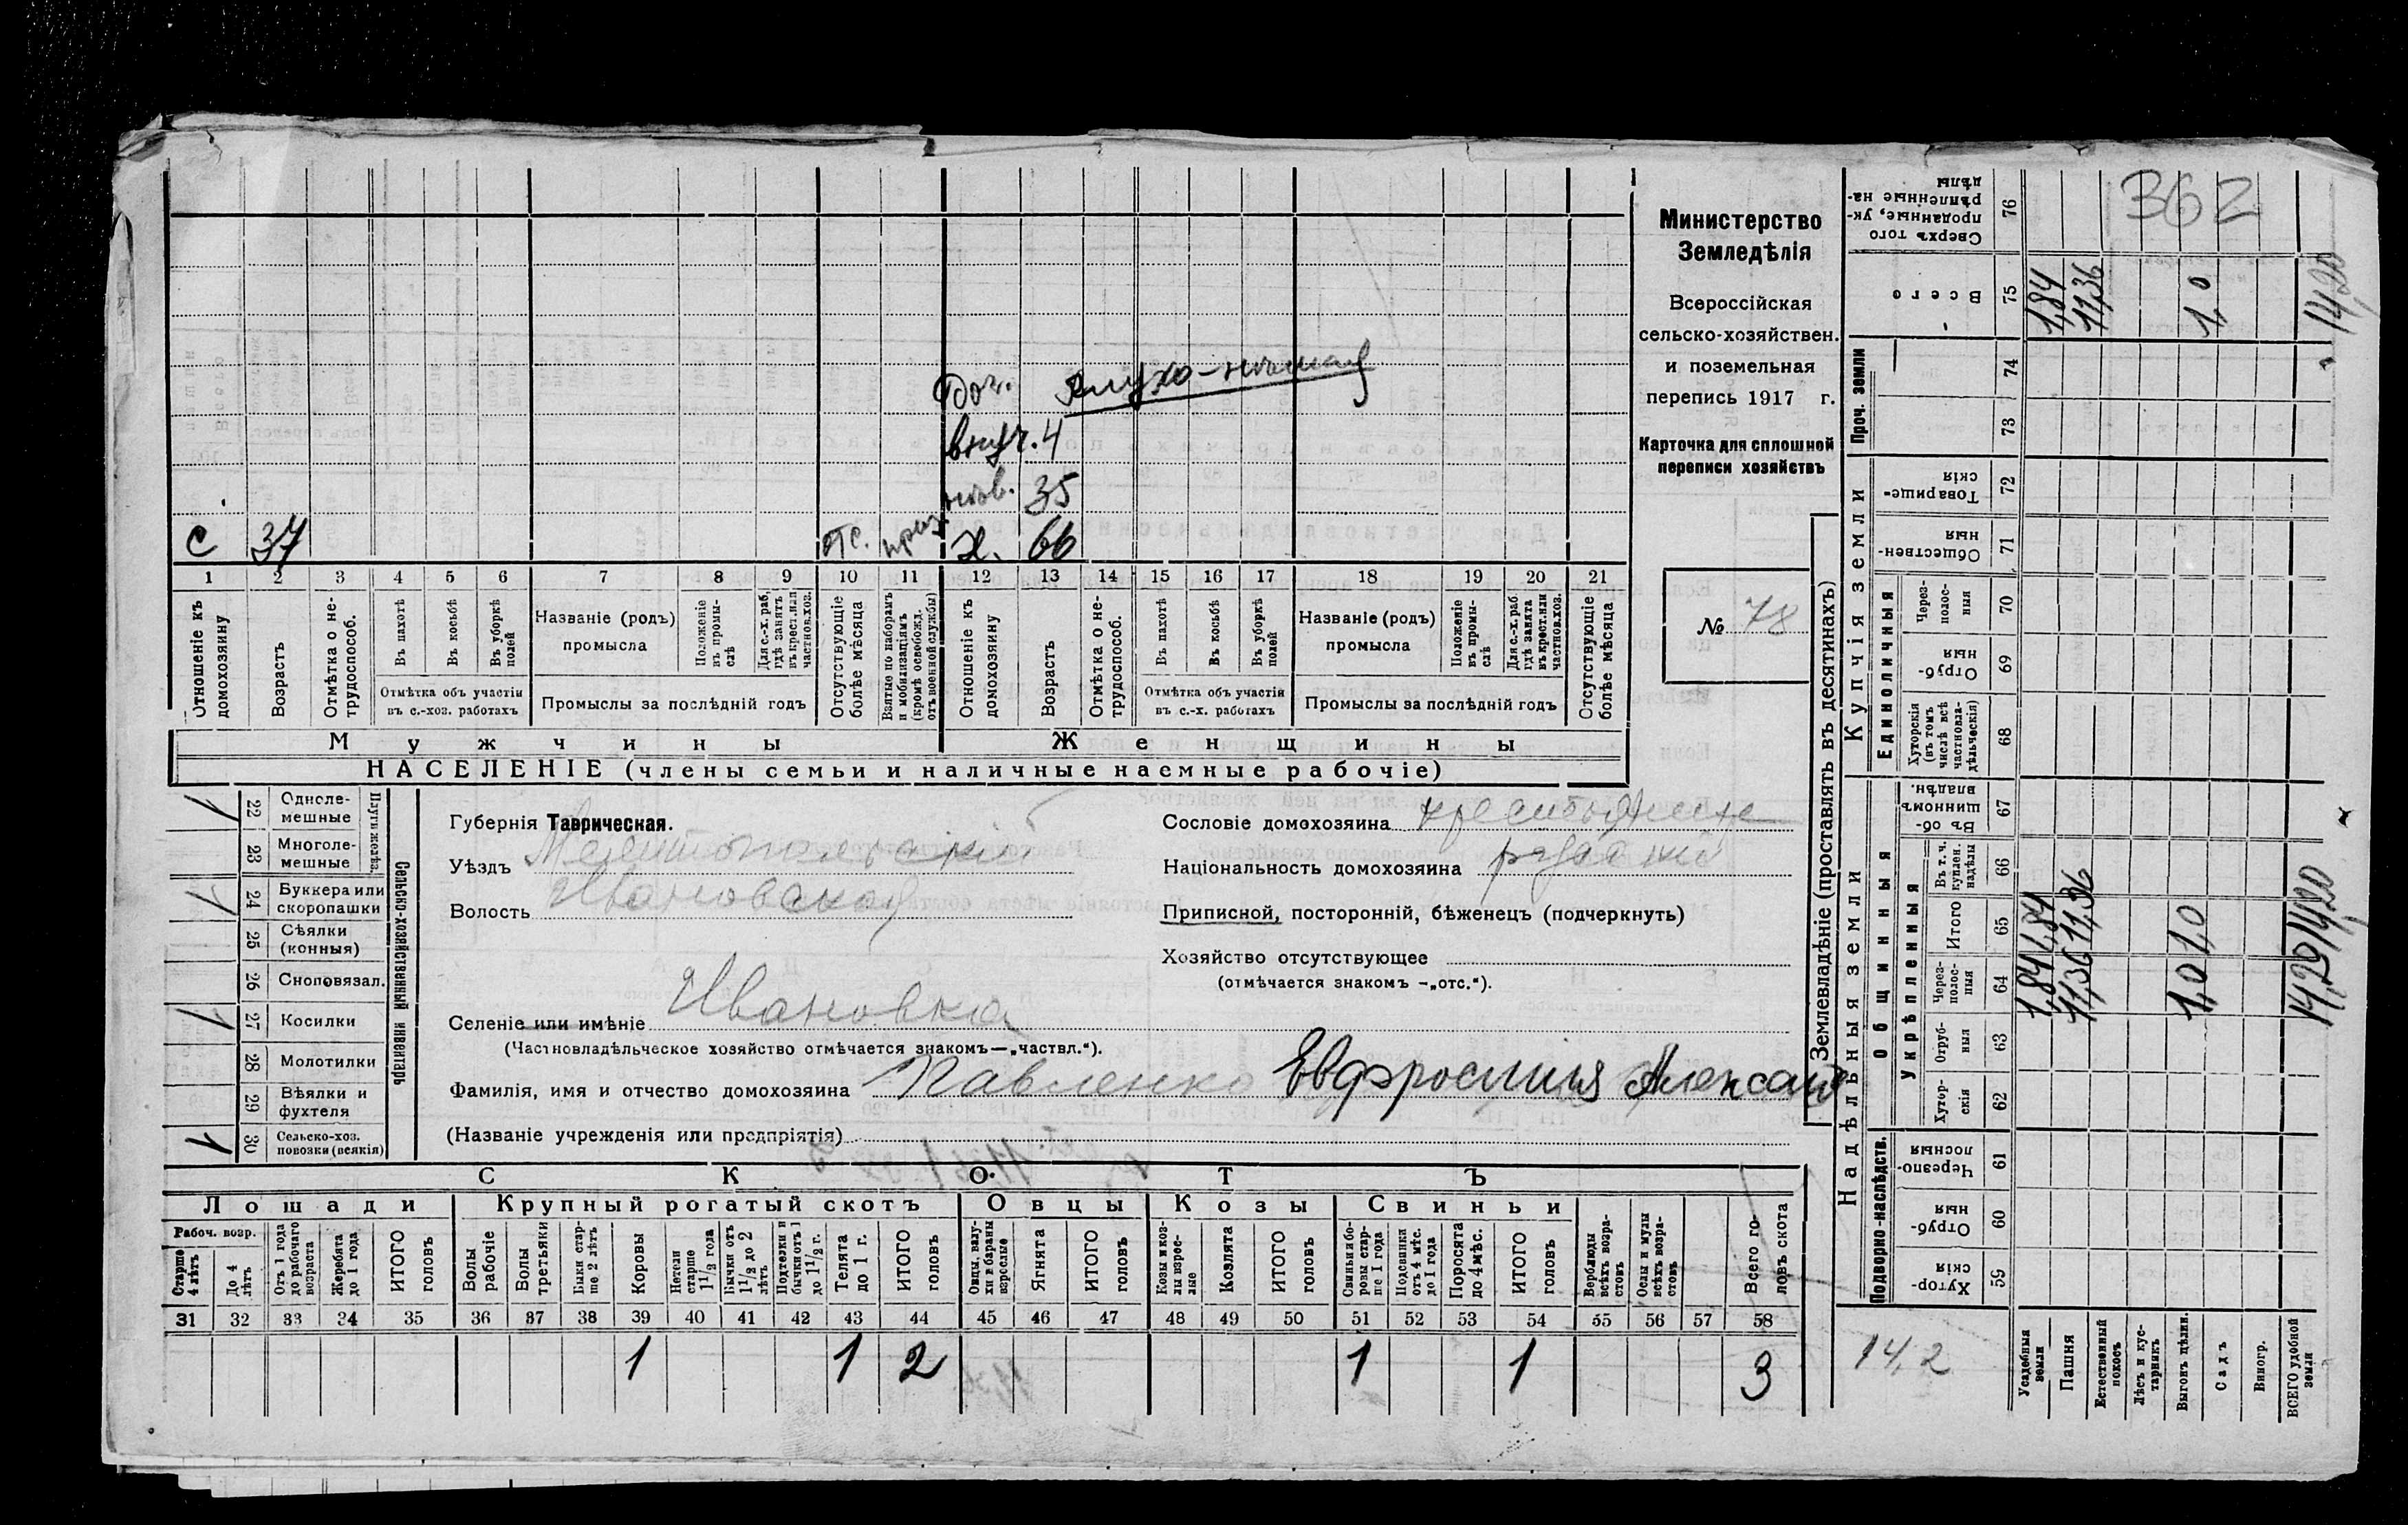 362
Министерство
Земледѣлія
Всероссійская
сельско-хозяйствен.
и поземельная
перепись 1917 г.
Карточка для сплошной
переписи хозяйствъ
№ 78
Доч. глухо-нѣмая
внуч. 4
невѣ. 35
С 37 отс. приз. Х. 66
1 2 3 4 5 6 7 8 9 10 11 12 13 14 15 16 17 18 19 20 21
Отношеніе къ домохозяину
Возрастъ
Отмѣтка о нетрудоспособ.
Въ пахотѣ
Въ косьбѣ
Въ уборкѣ полей
Отмѣтка объ участіи
въ с.-хоз. работахъ
Названіе (родъ)
промысла
Положеніе въ промыслѣ
Для с.-х. раб, гдѣ занятъ въ крест. или частнов. хоз.
Промыслы за послѣдній годъ
Отсутствующіе болѣе мѣсяца
Взятые по наборамъ и мобилизаціямъ (кромѣ освобожд. отъ военной службы)
Отношеніе къ домохозяину
Возрастъ
Отмѣтка о нетрудоспособ.
Въ пахотѣ
Въ косьбѣ
Въ уборкѣ полей
Отмѣтка объ участіи
въ с.-х. работахъ
Названіе (родъ)
промысла
Положеніе въ промыслѣ
Для с.-х. раб. гдѣ занята въ крест. или частнов. хоз.
Промыслы за послѣдній годъ
Отсутствующіе болѣе мѣсяца
Мужчины Женщины
НАСЕЛЕНІЕ (члены семьи и наличные наемные рабочіе)
Сельско-хозяйственный инвентарь
Плуги желѣз.
22 Однолемешные 1
23 Многолемешные
24 Буккера или скоропашки 1
25 Сѣялки (конныя)
26 Сноповязал.
27 Косилки 1
28 Молотилки
29 Вѣялки и фухтеля
30 Сельско-хоз. повозки (всякія) 1
Губернія Таврическая.
Уѣздъ Мелитопольскій
Волость Ивановская
Сословіе домохозяина крестьянка
Національность домохозяина
Приписной, посторонній, бѣженецъ (подчеркнуть)
Хозяйство отсутствующее
(отмѣчается знакомъ –„отс.“).
Селеніе или имѣніе Ивановка
(Частновладѣльческое хозяйство отмѣчается знакомъ—„частвл.“).
Фамилія, имя и отчество домохозяина Павленко Евфросинія Александ
(Названіе учрежденія или предпріятія)
СКОТЪ
Лошади Крупный рогатый скотъ Овцы Козы Свиньи
Рабоч. возр.
Старше 4 лѣтъ
До 4 лѣтъ
Отъ 1 года до рабочаго возраста
Жеребята до 1 года
ИТОГО головъ
Волы рабочіе
Волы третьяки
Быки старше 2 лѣтъ
Коровы
Нетели старше 1 1/2 года
Бычки отъ 1 1/2 до 2 лѣтъ
Подтелки и бычки отъ 1 до 1 1/2 г.
Телята до 1 г.
ИТОГО головъ
Овцы, валухи и бараны взрослые
Ягнята
ИТОГО головъ
Козы и козлы взрослые
Козлята
ИТОГО головъ
Свиньи и боровы старше 1 года
Подсвинки отъ 4 мѣс. до 1 года
Поросята до 4 мѣс.
ИТОГО головъ
Верблюды всѣхъ возрастовъ
Ослы и мулы всѣхъ возрастовъ
Всего головъ скота
31 32 33 34 35 36 37 38 39 40 41 42 43 44 45 46 47 48 49 50 51 52 53 54 55 56 57 58
1 1 2 1 1 3
Землевладѣніе (проставлять въ десятинахъ)
Надѣльныя земли Купчія земли Проч. земли
Подворно-наслѣдств.
Общинныя
Укрѣпленныя
Единоличныя
Хуторскія 59
Отрубныя 60
Черезполосныя 61
Хуторскія 62
Отрубныя 63
Черезполосныя 64
Итого 65
Въ т. ч. куплен. надѣлы 66
Въ общинномъ владѣн. 67
Хуторскія (въ томъ числѣ всѣ частновладѣльческія) 68
Отрубныя 69
Черезполосныя 70
Общественныя 71
Товарищескія 72
73
74
Всего 75
Сверхъ того проданные, укрѣпленные надѣлы 76
14,2
Усадебныя земли 1,84 1,84 1,84
Пашня 11,36 11,36 11,36
Естественный покосъ
Лѣсъ и кустарникъ
Выгонъ цѣлин. 1,0 1,0 1,0
Садъ
Виногр.
ВСЕГО удобной земли 14,20 14,20 14,20